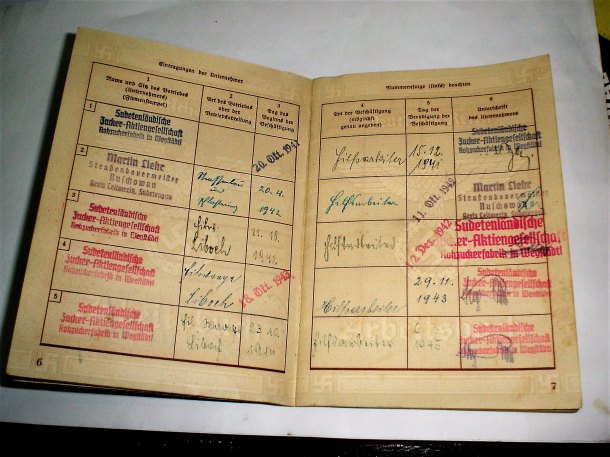 Eintragungen der Unternehmer
1
Name und Sitz des Betriebes
(Unternehmers)
(Firmenstempel)
2
Art des Betriebes
oder der
Betriebsabteilung
3
Tag des
Beginns der
Beschäftigung
1
Sudetenländische
Zucker-Aktiengesellschaft
Rohzuckerfabrik in Wegstädtl
20. Okt. 1941
2
Martin Liehr
Straßenbauermeister
Auschowan
Kreis Leitmeritz, Sudetengau
20.4.
1942
3
Sudetenländische
Zucker-Aktiengesellschaft
Rohzuckerfabrik in Wegstädtl
Liboch
1942
4
Sudetenländische
Zucker-Aktiengesellschaft
Rohzuckerfabrik in Wegstädtl
Liboch
18. Okt. 1943
5
Sudetenländische
Zucker-Aktiengesellschaft
Rohzuckerfabrik in Wegstädtl
23.10.
1944
6
Nummernfolge (links) beachten
4
Art der Beschäftigung
(möglichst
genau angeben)
5
Tag der
Beendigung der
Beschäftigung
6
Unterschrift
des Unternehmers
Hilfsarbeiter
15.12.
1941
Sudetenländische
Zucker-Aktiengesellschaft
Rohzuckerfabrik in Wegstädtl
Hilfsarbeiter
11. Okt. 1942
Martin Liehr
Straßenbauermeister
Auschowan
Kreis Leitmeritz, Sudetengau
Hilfsarbeiter
12. Dez. 1942
Sudetenländische
Zucker-Aktiengesellschaft
Rohzuckerfabrik in Wegstädtl
Hilfsarbeiter
29.11.
1943
Sudetenländische
Zucker-Aktiengesellschaft
Rohzuckerfabrik in Wegstädtl
Hilfsarbeiter
1945
Sudetenländische
Zucker-Aktiengesellschaft
Rohzuckerfabrik in Wegstädtl
7